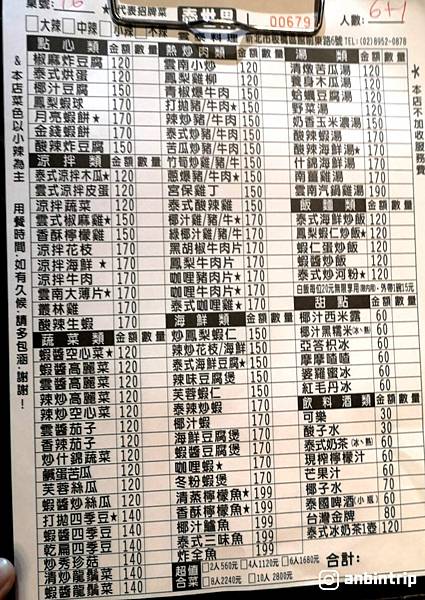 桌號:
★代表招牌菜
泰世界
00679
人數: 6+1
大辣 中辣 小辣 不辣
雲泰料理 TEL:(02)8952-0878
& 本店菜色以小辣為主 用餐時間,如有久候,請多包涵,謝謝!
★本店不加收服務費
點心類 金額 數量
椒麻炸豆腐 120
泰式烘蛋 120
椰汁豆腐 150
鳳梨蝦球 170
月亮蝦餅★ 170
金錢蝦餅 170
酸辣炸豆腐 150
涼拌類 金額 數量
泰式涼拌木瓜★ 120
雲式涼拌皮蛋 120
涼拌蔬菜 120
雲式椒麻雞★ 150
香酥檸檬雞 150
涼拌花枝 170
涼拌海鮮★ 170
涼拌牛肉 170
雲南大薄片★ 170
叢林雞 170
酸辣生蝦 170
蔬菜類 金額 數量
蝦醬空心菜★ 120
蝦醬高麗菜 120
雲醬高麗菜 120
辣炒高麗菜 120
辣炒空心菜 120
雲醬茄子 120
香辣茄子 120
炒什錦蔬菜 120
鹹蛋苦瓜 120
芙蓉絲瓜 120
蝦醬炒絲瓜 120
打拋四季豆★ 140
蝦醬四季豆 140
乾扁四季豆 140
炒秀珍菇 140
清炒龍鬚菜 140
蝦醬龍鬚菜 140
熱炒肉類 金額 數量
雲南小炒 150
鳳梨雞柳 150
青椒爆牛肉 150
打拋豬/牛肉★ 150
辣炒豬/牛肉 150
泰式炒豬/牛肉 150
苦瓜炒豬/牛肉 150
竹筍炒雞/豬/牛 150
蔥爆豬/牛肉★ 150
宮保雞丁 150
泰式酸辣雞 150
椰汁雞/豬/牛★ 170
綠椰汁雞/豬/牛 170
黑胡椒牛肉片 170
鳳梨牛肉片 170
咖哩豬肉片★ 170
咖哩牛肉片★ 170
泰式咖哩雞★ 170
海鮮類 金額 數量
炒鳳梨蝦仁 150
辣炒花枝/海鮮 150
泰式海鮮豆腐★ 150
辣味豆腐煲 150
芙蓉蝦仁 150
泰辣炒蝦 170
椰汁蝦 170
海鮮豆腐煲 170
蝦醬豆腐煲 170
咖哩蝦★ 170
冬粉蝦煲 170
清蒸檸檬魚★ 199
香酥檸檬魚★ 199
椰汁鱸魚 199
泰式三味魚 199
炸全魚 199
湯類 金額 數量
清燉苦瓜湯
雲醬木瓜湯
蛤蠣豆腐湯
野菜湯
奶香玉米濃湯 150
酸辣蝦湯 150
酸辣海鮮湯★ 170
什錦海鮮湯 170
南薑雞湯 170
雲南汽鍋雞 190
飯麵類 金額 數量
泰式海鮮炒飯 120
鳳梨蝦仁炒飯 120
蝦仁蛋炒飯 120
蝦醬炒飯 120
泰式炒河粉★ 120
白飯每位20元無限享用(限內用),外帶1碗15元
甜點 金額 數量
椰汁西米露 50
椰汁黑糯米(冰、熱) 60
亞答枳冰 60
摩摩喳喳 60
婆羅蜜冰 60
紅毛丹冰 60
飲料酒類 金額 數量
可樂 30
酸子水 30
泰式奶茶(冰、熱) 60
現榨檸檬汁 60
芒果汁 60
椰子水 70
泰國啤酒(小瓶) 60
台灣金牌 80
泰式冰奶茶1壺 120
超值合菜 2人560元 4人1120元 6人1680元
8人2240元 10人2800元
合計:
anbintrip